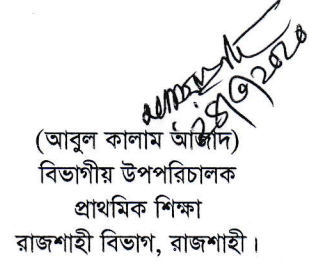 (আবুল কালাম আজাদ)
বিভাগীয় উপপরিচালক
প্রাথমিক শিক্ষা
রাজশাহী বিভাগ, রাজশাহী।